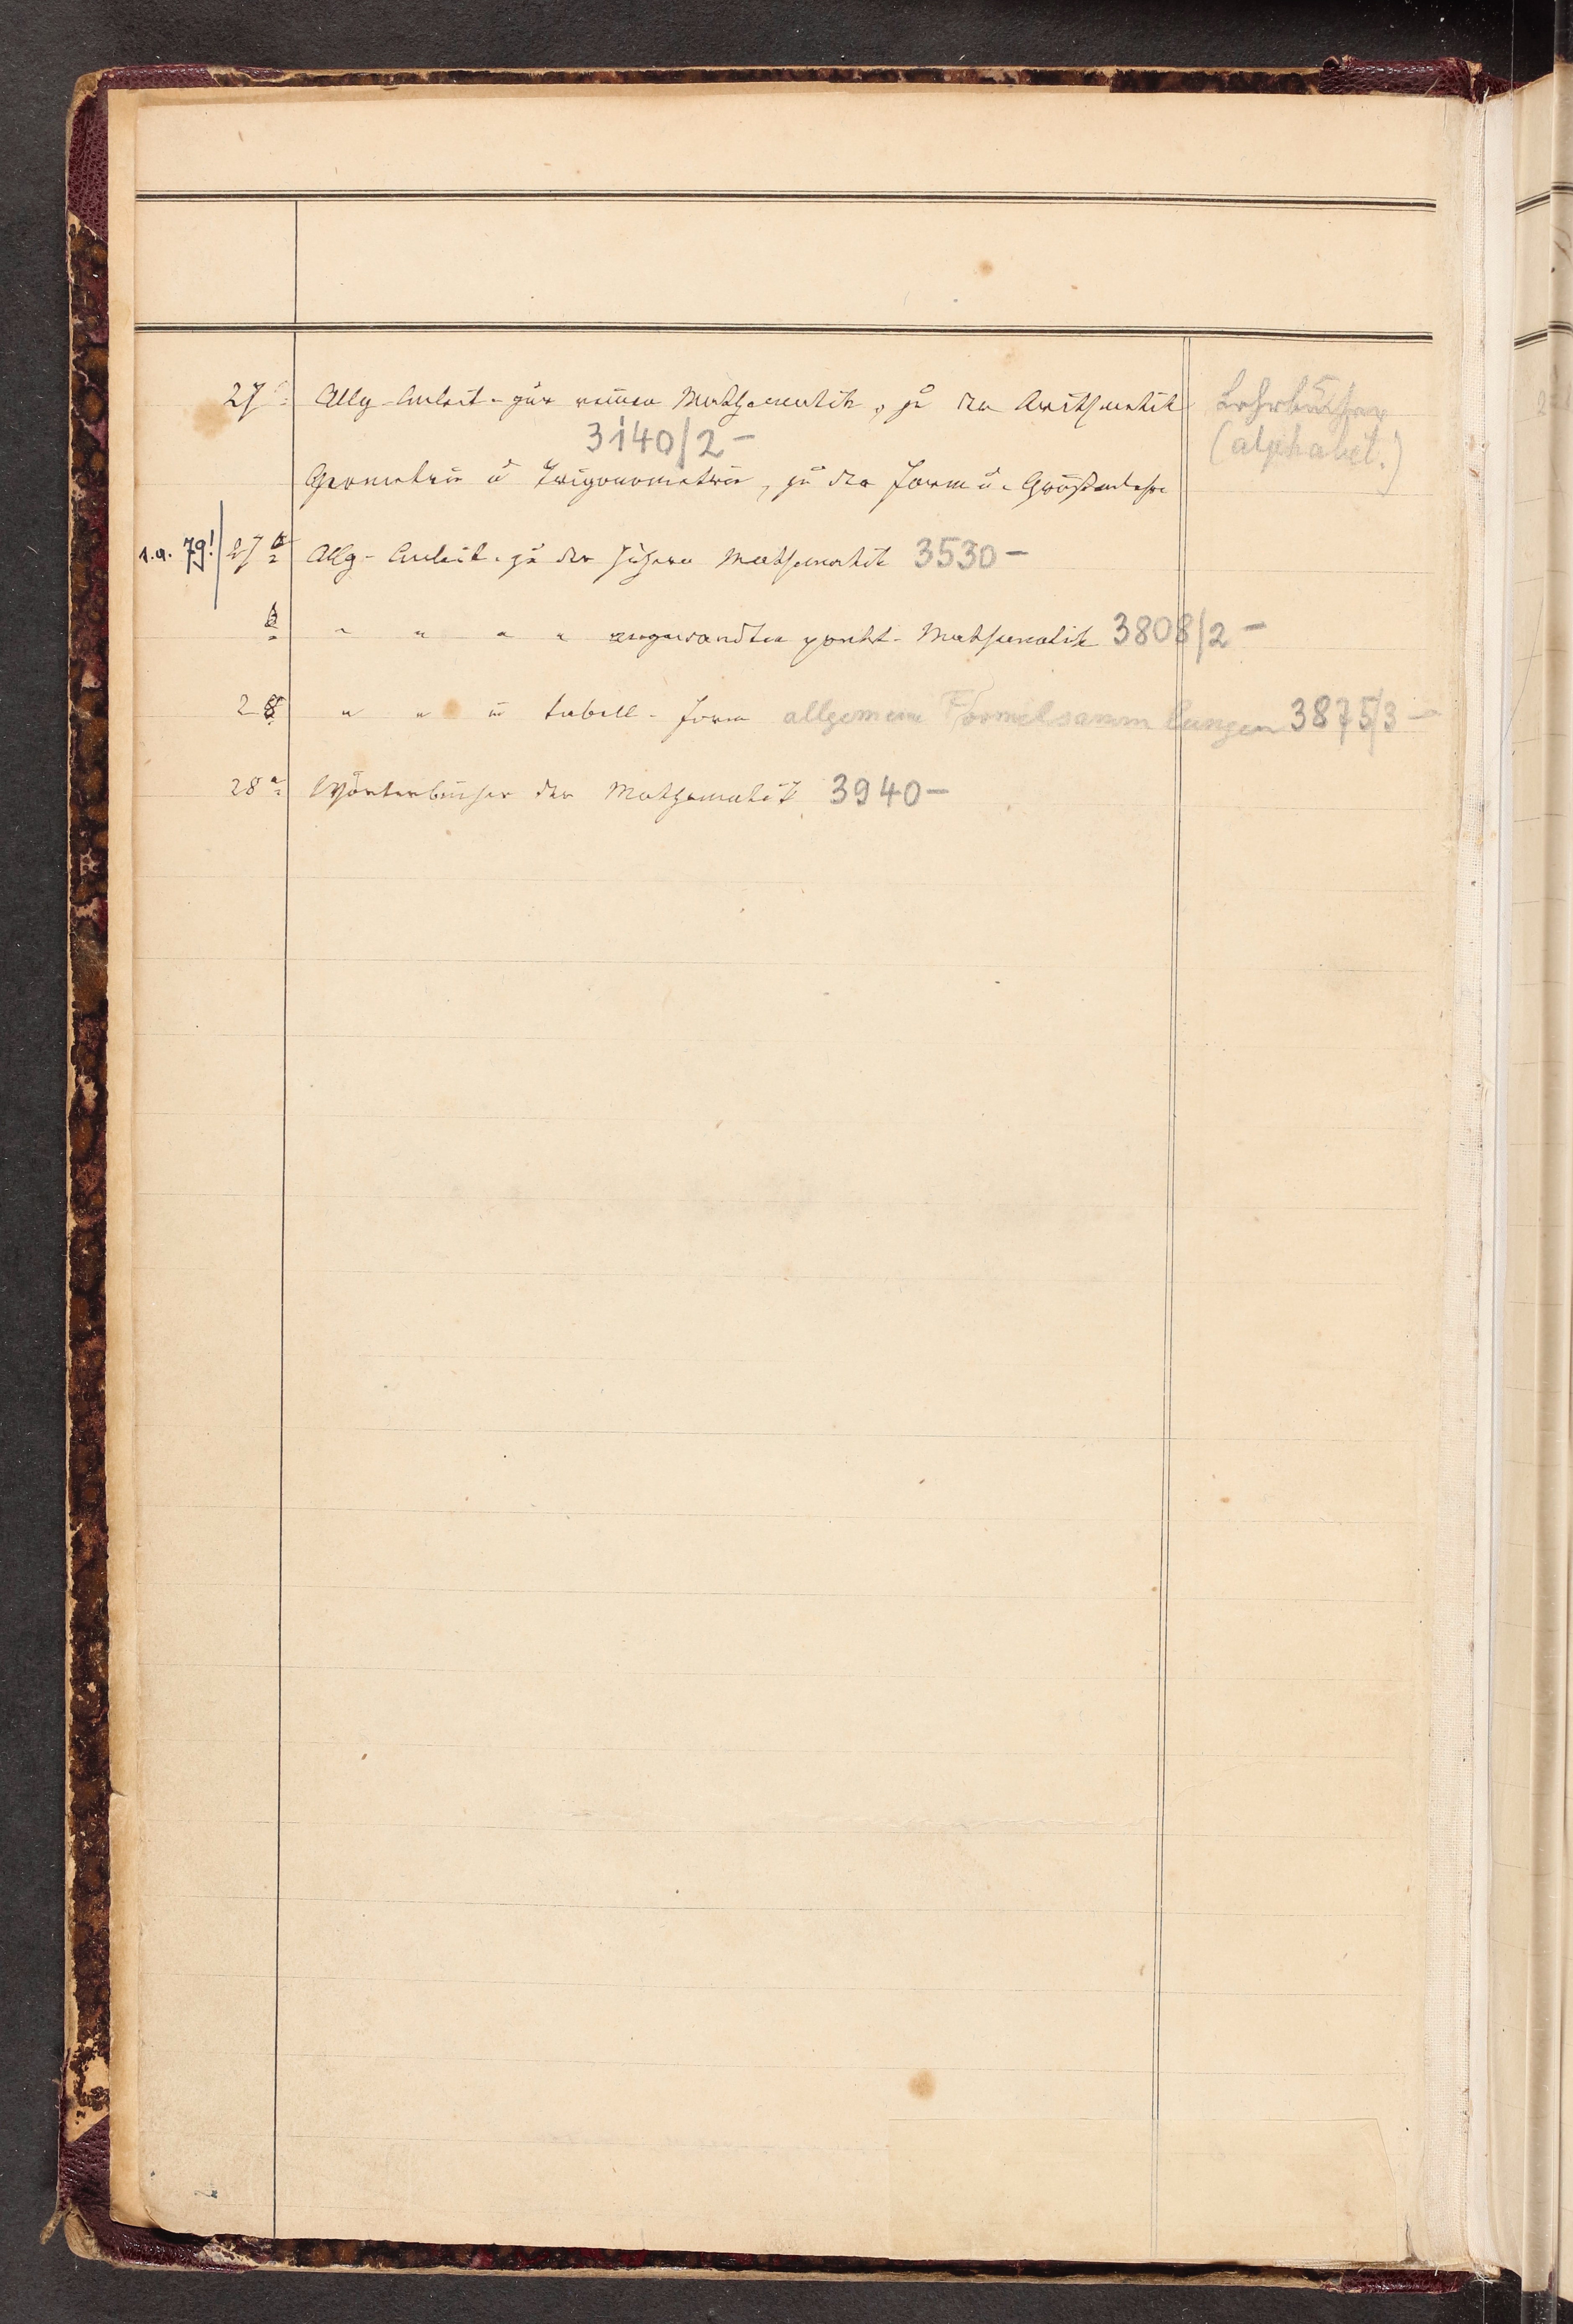 27 Allg. Anleit. zur reinen Mathematik, zu der Arithmetik Lehrbücher
3140/2 – (alphabet.)
Geometrie u Trigonometrie, zu der Form u. Größenlehre
s.a. 79! 27 a Allg. Anleit. zu der höhern Mathematik 3530 –
b " " " " angewandten prakt. Mathematik 3808/2 –
28 " " in tabell. Form allgemeine Formelsammlungen 3875/3 –
28 a Wörterbücher der Mathematik 3940 –